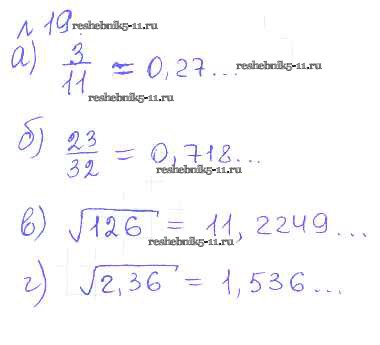 № 19.
reshebniki5-11.ru
а) 3/11 ≈ 0,27...
reshebniki5-11.ru
reshebniki5-11.ru
б) 23/32 = 0,718...
reshebniki5-11.ru
в) √126 = 11,2249...
reshebniki5-11.ru
г) √2,36 = 1,536...